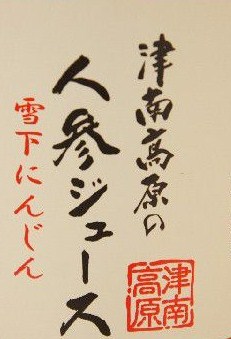 津南高原の
人参ジュース
雪下にんじん
津南
高原